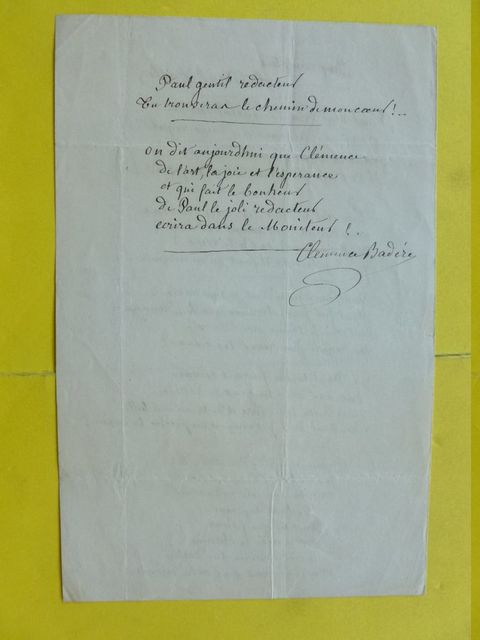 Paul gentil redacteur
Tu trouveras le chemin de mon coeur !..
on dit aujourdhui que Clémence
de l'art, la joie et l'esperance
et qui fait le bonheur
de Paul le joli redacteur
ecrira dans le Moniteur !..
Clémence Badère